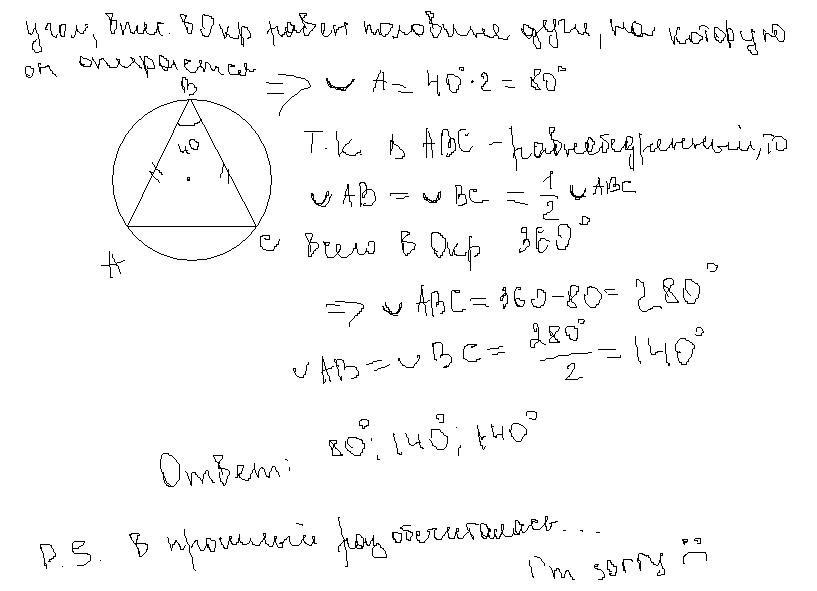 угол, впис. в Окр равен половине дуги, на которую
он опирается => ◡ A = 40°·2 = 80°
B
40
Т.к. в ABC - равнобедренный, то
◡ AB = ◡ BC = 1/2 ◡ ABC
C
A
всего в Окр 360°
=> ◡ ABC = 360-80 = 280°
◡ AB = ◡ BC = 280°/2 = 140°
Ответ: 80°; 140°; 140°
P.S. В прошлый раз обсчиталась...
I'm sorry :(